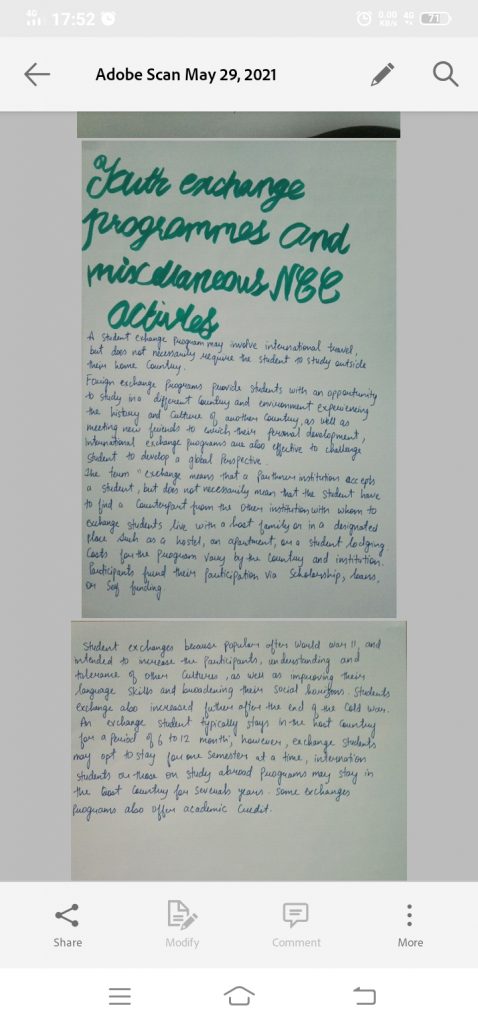 4G 17:52 0.00 KB/s 4G 71
Adobe Scan May 29, 2021
Youth exchange
programmes and
miscellaneous NCC
activites
A student exchange program may involve international travel,
but does not necessarily require the student to study outside
their home country.
Foreign exchange programs provide students with an opportunity
to study in a different country and environment experiencing
the history and culture of another country, as well as
meeting new friends to enrich their personal development,
International exchange programs are also effective to challenge
student to develop a global Perspective.
The term "exchange means that a partner institution accepts
a student, but does not necessarily mean that the student have
to find a counterpart from the other institution with whom to
exchange students live with a host family or in a designated
place such as a hostel, an apartment, or a student lodging
Costs for the program vary by the country and institution.
Participants fund their participation via Scholarship, loans,
or Self funding.
Student exchanges because popular after World war II, and
intended to increase the participants, understanding and
tolerance of other cultures, as well as improving their
language skills and broadening their social horizons. Students
exchange also increased futher after the end of the Cold war.
An exchange student typically stays in the host country
for a period of 6 to 12 month, however, exchange students
may opt to stay for one semester at a time, internation
students or those on study abroad programs may stay in
the host country for severals years. Some exchanges
programs also offer academic credit.
Share
Modify
Comment
More